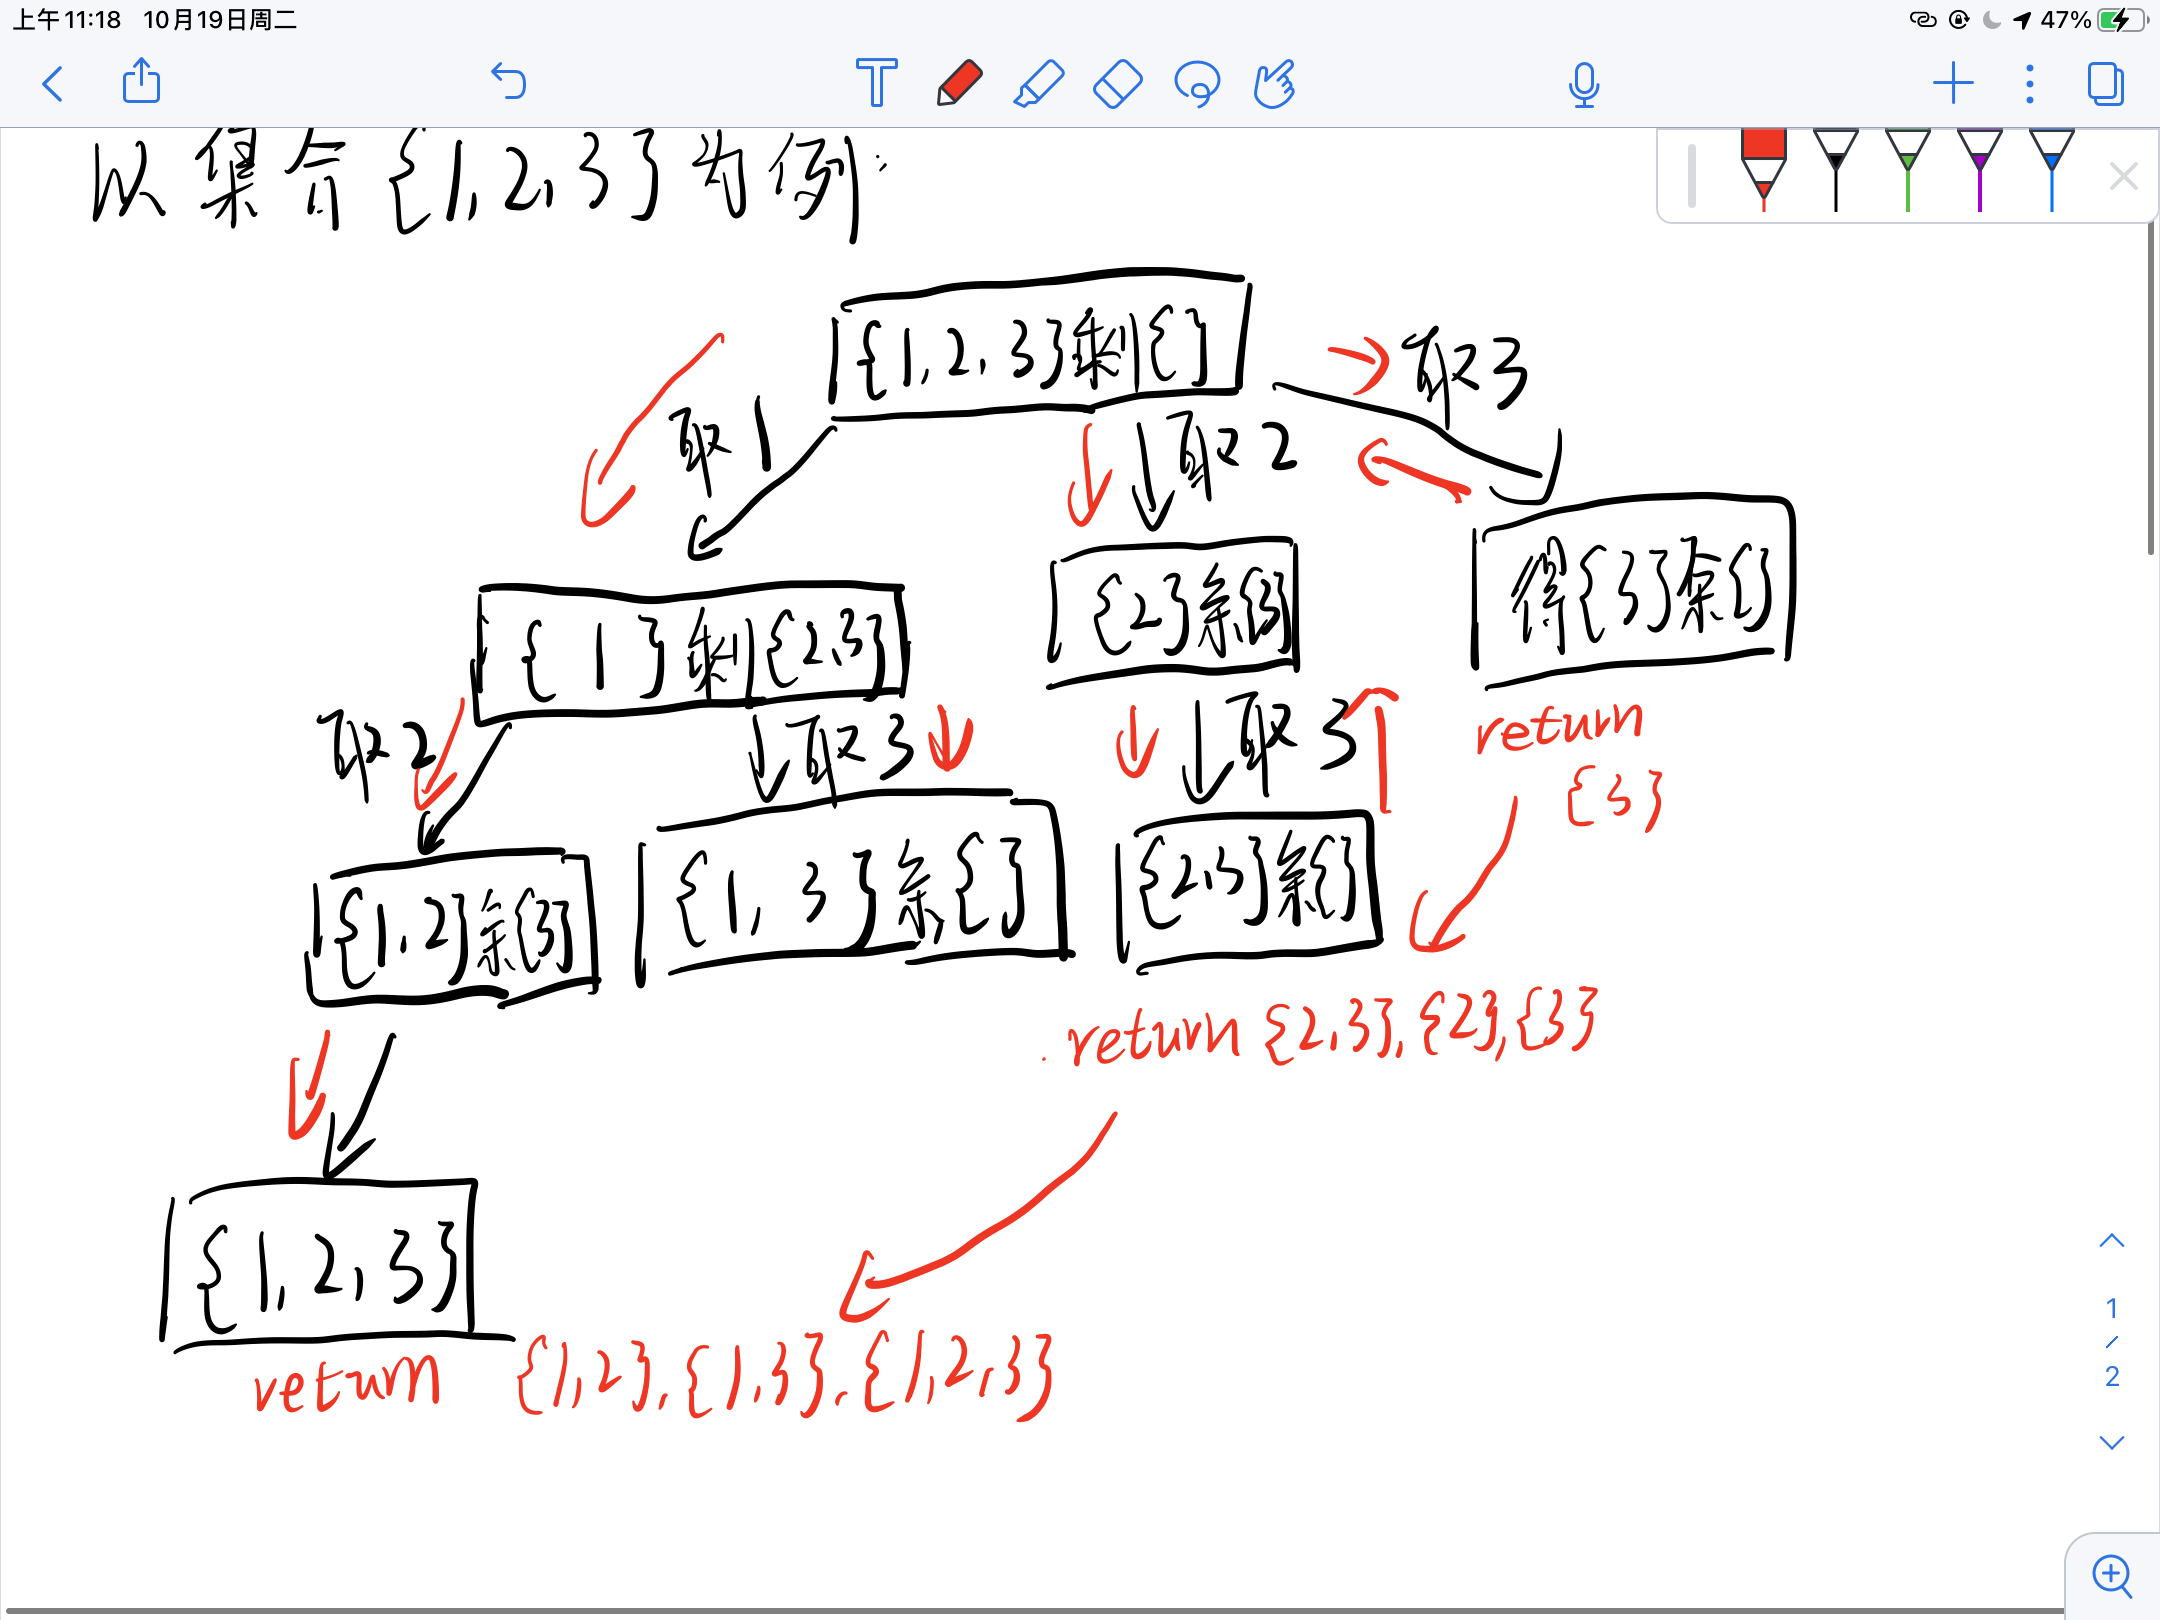 上午11:18 10月19日周二
47%
以集合{1,2,3}为例:
{1,2,3}剩{}
取3
取1
取2
{1}剩{2,3}
{2}余{3}
得{3}余{}
取2
取3
取3
return
{3}
{1,2}余{3}
{1,3}余{}
{2,3}余{}
return {2,3},{2},{3}
{1,2,3}
return {1,2},{1,3},{1,2,3}
1
/
2